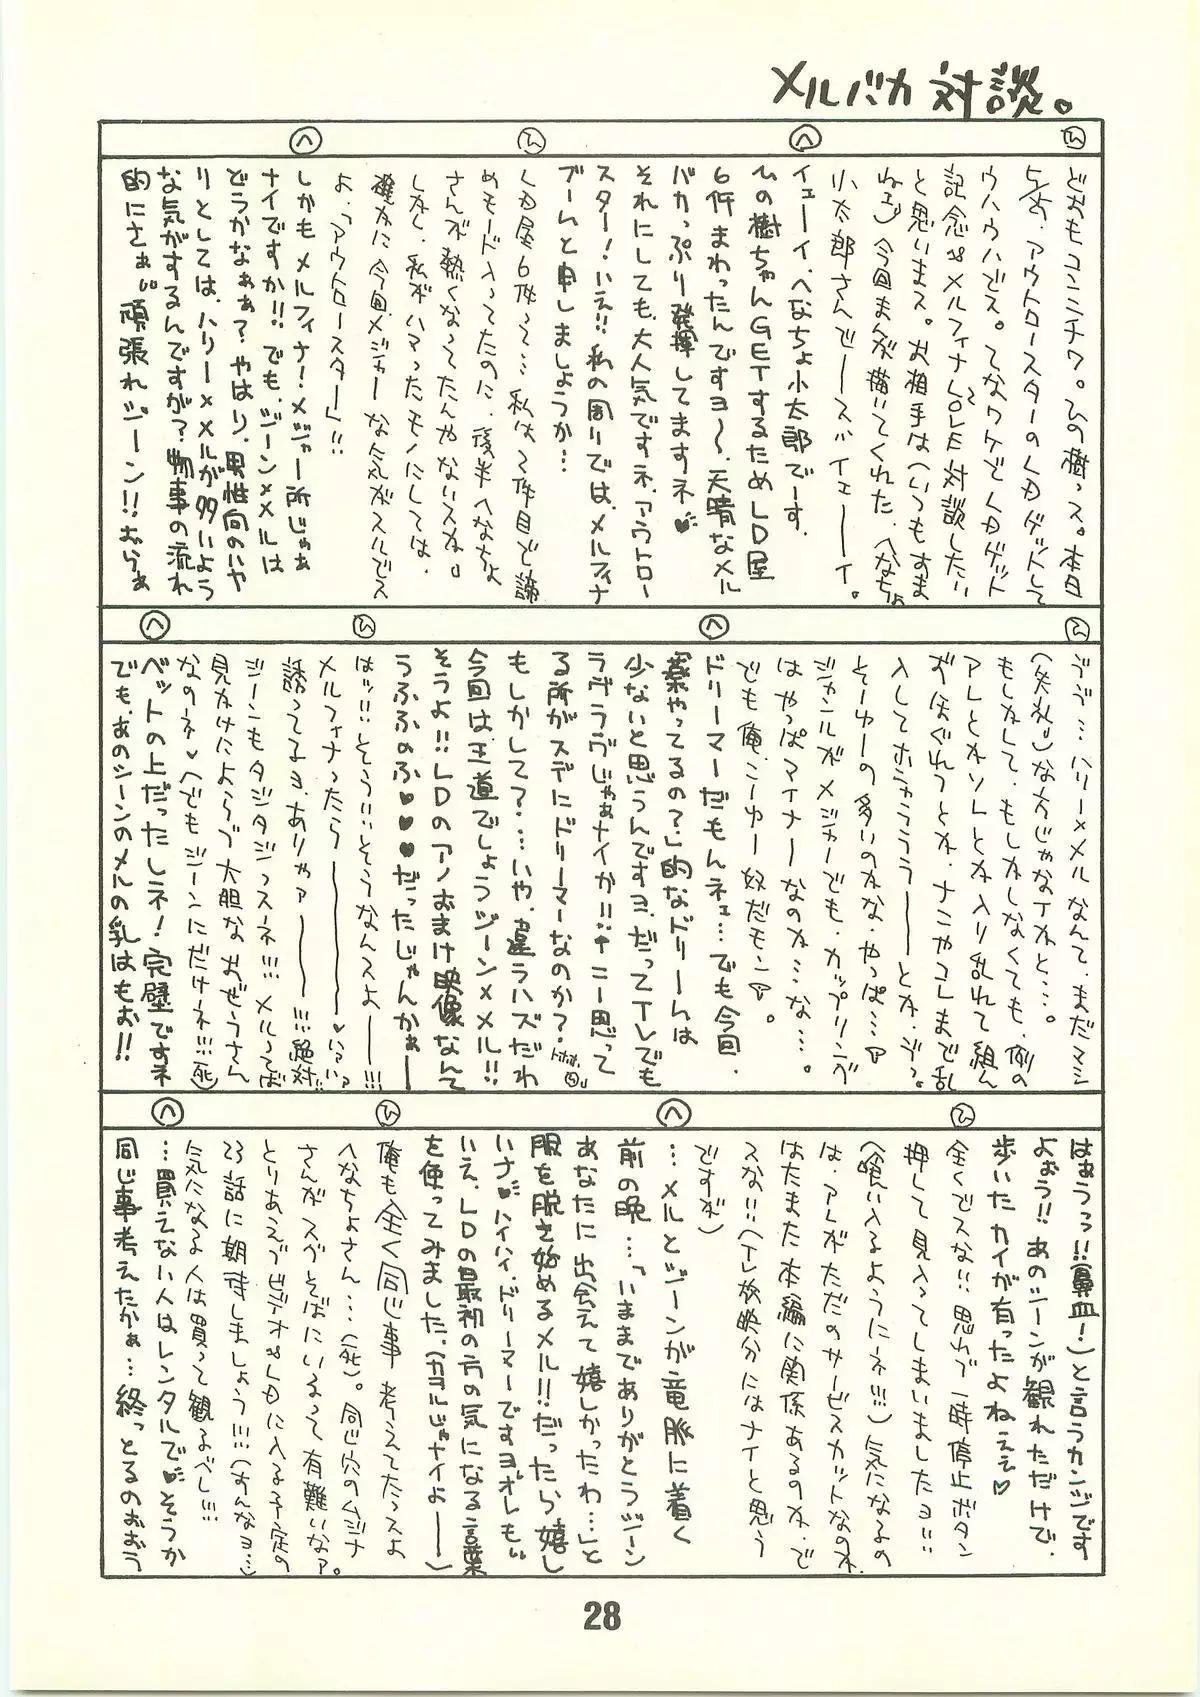 メルバカ対談。
ひ
へ
ひ
へ
どおもコンニチワ。ひの樹っス。本日
アウトロースターのLDゲットして
ウハウハでス。てなワケでLDゲット
記念&メルフィナLOVE対談したい
と思いまス。お相手は(いつもすま
ねェ)今回まんが描いてくれた、へなちょ
小太郎さんでーースバイェーーイ。
イェーーイ、へなちょ小太郎でーす。
ひの樹ちゃんGETするためLD屋
6件まわったんですヨ〜、天晴なメル
バカっぷり発揮してますネ♥
それにしても、大人気ですネ、アウトロー
スター!いえ!!私の周りでは、メルフィナ
ブームと申しましょうか…
LD屋6件って…私は2件目で諦
めモード入ってたのに、後半へなちょ
さんが熱くなってたんやないスか。
しかし、私がハマったモノにしては、
確かに今回メジャーな気がスルでス
よ、「アウトロースター」!!
しかもメルフィナ!メジャー所じゃぁ
ナイですか!!でも、ジーン×メルは
どうかなぁぁ?やはり、男性向のハヤ
リとしては、ハリー×メルが多いよう
な気がするんですが?物事の流れ
的にさぁ!!頑張れジーン!!おらぁ
ひ
へ
ひ
へ
うう…ハリー×メルなんて、まだマシ
(失礼!!)な方じゃなTかと…。
もしかして、もしかしなくても、例の
アレとかソレとか入り乱れて組ん
ずほぐれつとか、ナニやコレまで乱
入してホニャラララーーーとか、ジっ。
とーゆーの多いのかな、やっぱ…
ジャンルがメジャーでも、カップリングが
はやっぱマイナーなのか…な…。
でも俺、こーゆー奴だモン。
ドリーマーだもんネェ…でも今回、
「薬やってるの?」的なドリームは
少ないと思うんですヨ、だってTレでも
ラヴラヴじゃぁナイか!!↑こー思って
る所がスデにドリーマーなのか?
もしかして?…いや、違うハズだわ
今回は王道でしょうジーン×メル!!
そうよ!!LDのアノおまけ映像なんて
うふふのふ♥♥♥だったじゃんかぁー
はッ!!そう!!そうなんスよーーー!!!
メルフィナったらーーーーー♥
誘ってるヨ、ありゃアーーー!!!絶対
ジーンもタジタジっスネ!!!メルってば
見かけによらず大胆なおぜうさん
なのネ♥(でもジーンにだけネ!!!死)
ベットの上だったしネ!完壁ですネ
でも、あのシーンのメルの乳はもお!!
ひ
へ
ひ
へ
はぁうっっ!!(鼻血!)と言うカンジです
よぉう!!あのシーンが観れただけで、
歩いたカイが有ったよねぇぇ♡
全くでスな!!思わず一時停止ボタン
押して見入ってしまいましたヨ!!
(喰い入るようにネ!!!)気になるの
は、アレがただのサービスカットなのか、
はたまた本編に関係あるのか、で
スな!!(Tレ放映分にはナイと思う
ですが)
…メルとジーンが竜脈に着く
前の晩…「いままでありがとうジーン
あなたに出会えて嬉しかったわ…」と
服を脱き始めるメル!!だったら嬉し
いさ♥ハイハイ、ドリーマーですヨ、オレも
いえ、LDの最初の方の気になる言葉
を使ってみました。(カヲルじゃナイよーー)
俺も全く同じ事考えてたっスよ
へなちょさん…(死)。同じ穴のムジナ
さんがスぐそばにいるって有難いなァ。
とりあえずビデオ&LDに入る予定の
23話に期待しましょう!!!(すんなョ…)
気になる人は買って観るべし!!!
…買えない人はレンタルで♥そうか
同じ事考えたかぁ…終っとるのおおう
28